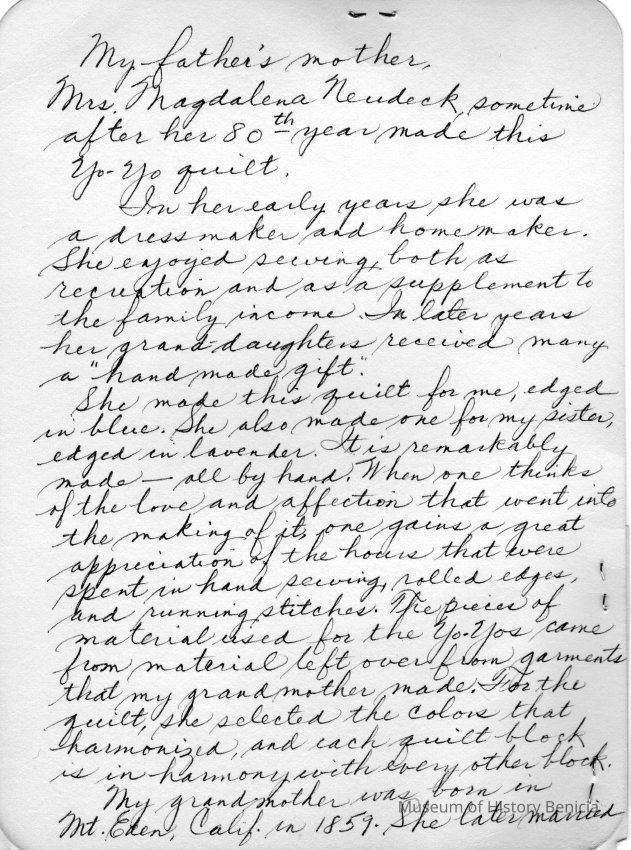 My father's mother,
Mrs. Magdalena Neudeck, sometime
after her 80th year made this
Yo-Yo quilt.
In her early years she was
a dressmaker and homemaker.
She enjoyed sewing, both as
recreation and as a supplement to
the family income. In later years
her grand-daughters received many
a "hand made gift".
She made this quilt for me, edged
in blue. She also made one for my sister,
edged in lavender. It is remarkably
made — all by hand. When one thinks
of the love and affection that went into
the making of it, one gains a great
appreciation of the hours that were
spent in hand sewing, rolled edges,
and running stitches. The pieces of
material used for the Yo-Yos came
from material left over from garments
that my grandmother made. For the
quilt, she selected the colors that
harmonized, and each quilt block
is in harmony with every other block.
My grandmother was born in
Museum of History Benicia
Mt. Eden, Calif. in 1859. She later married